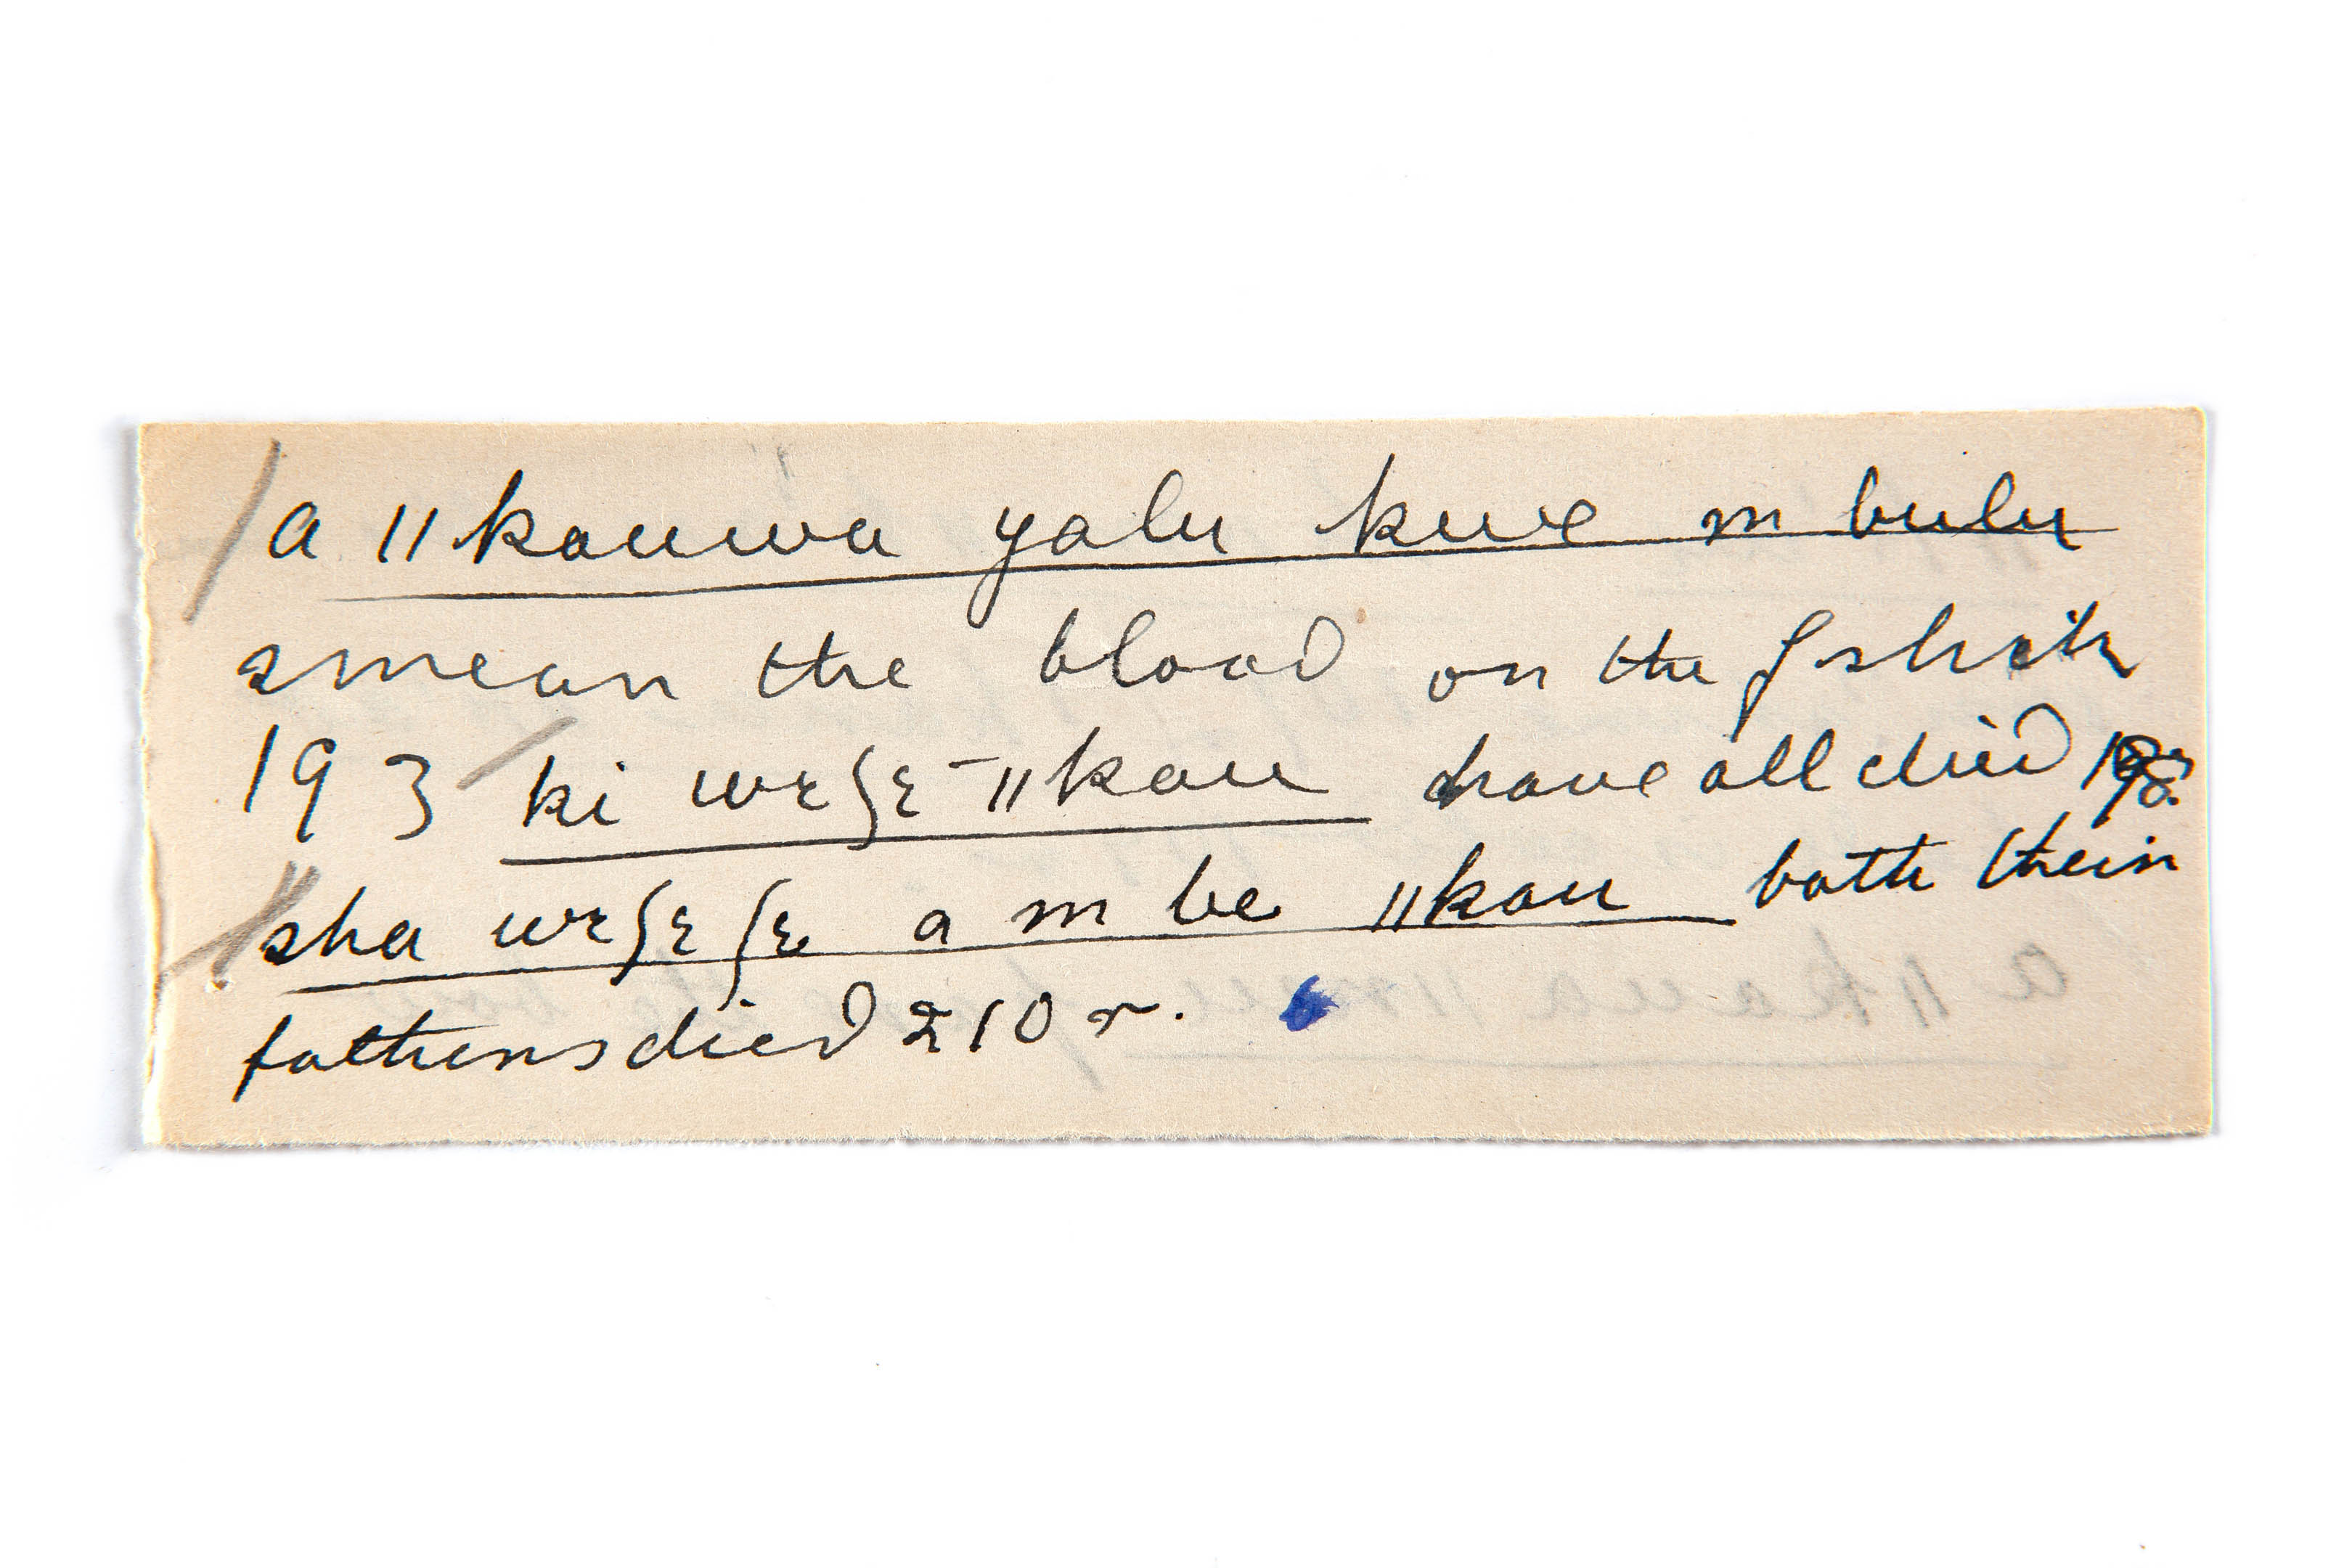 a ǁkauwa yalu kwe m bulu
smear the blood on the ʃ sheth
193 ki wɛʃɛ-ǁkau have all died
sha wɛʃɛʃɛ a m be ǁkau both their
fathers died 210 r.